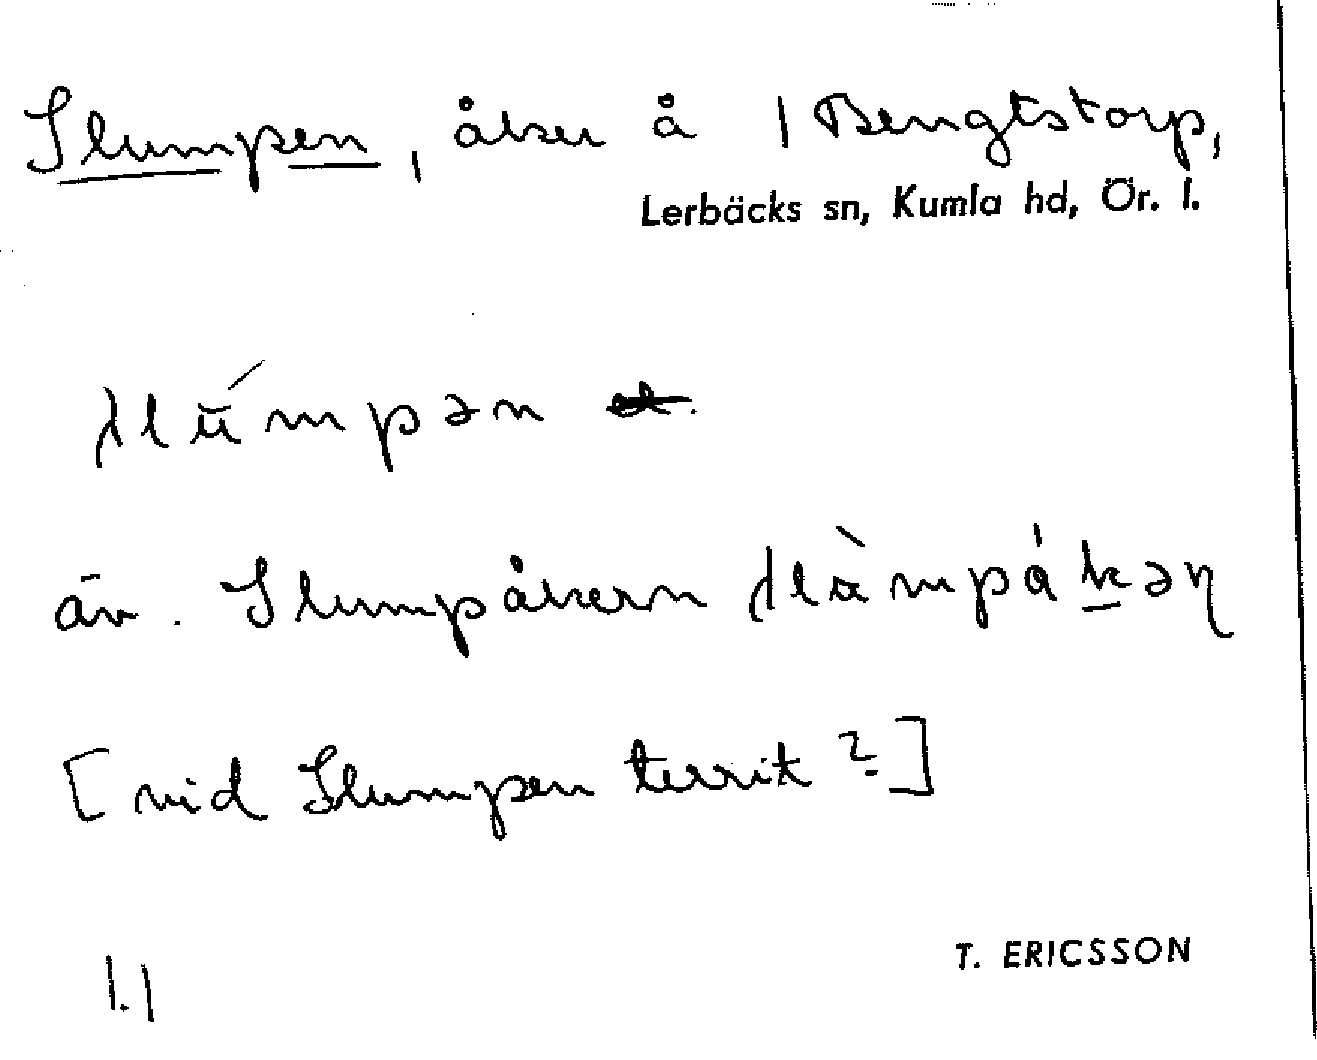 Slumpen, åker å 1 Bengtstorp,
Lerbäcks sn, Kumla hd, Ör. l.
slúmpən
äv. Slumpåkern slùmpåkəɳ
[vid Slumpen territ?]
T. ERICSSON